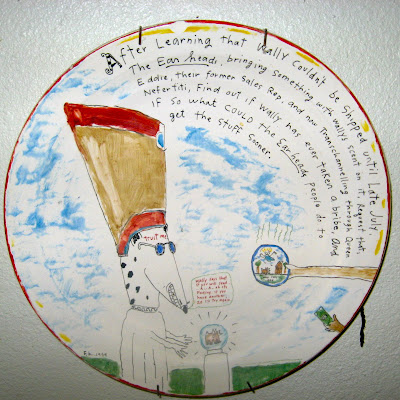 After Learning that Wally Couldn't be Shipped until Late July,
The Ear heads, bringing something with Wally's scent on it, Request that,
Eddie, their former Sales Rep, and now Transchannelling through Queen
Nefertiti, Find out if Wally has ever taken a bribe, and
IF So what COULD the Earheads people do to
get the Stuff Sooner.
TRUST ME
Wally says that
if you will send